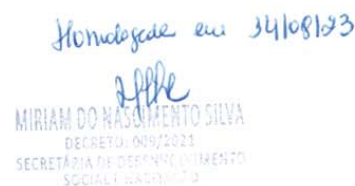 Homologada em 14/08/23
MIRIAM DO NASCIMENTO SILVA
DECRETO: 009/2021
SECRETÁRIA DE DESENVOLVIMENTO
SOCIAL E